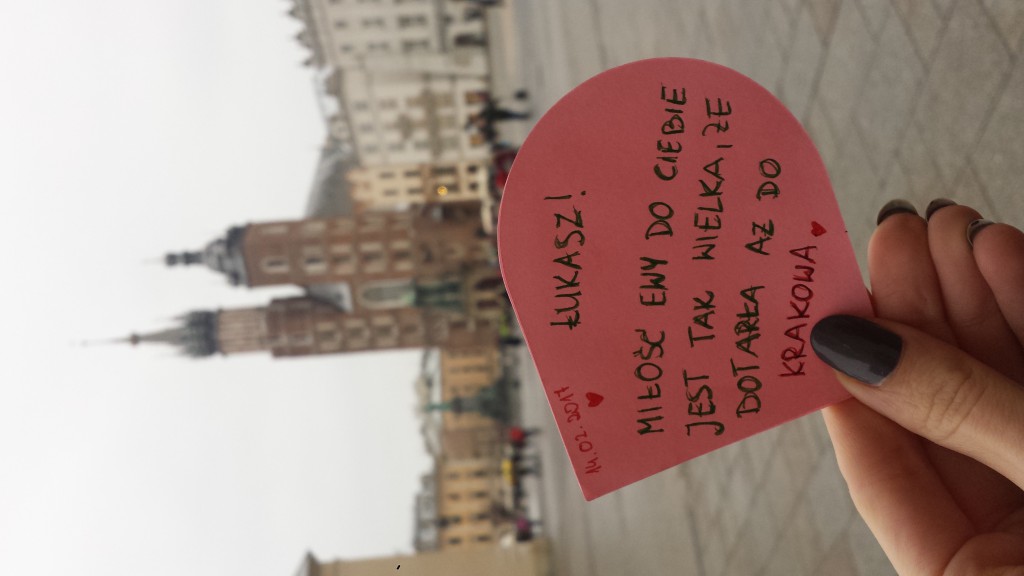 14.02.2017
ŁUKASZ!
MIŁOŚĆ EWY DO CIEBIE
JEST TAK WIELKA, ŻE
DOTARŁA AŻ DO
KRAKOWA